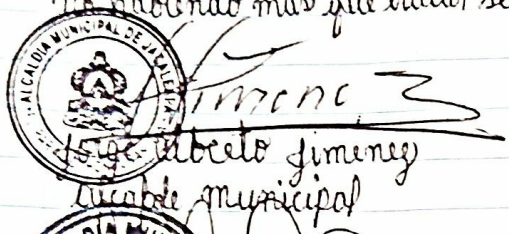 No habiendo mas que tratar se
ALCALDIA MUNICIPAL DE JACALEAPA
Jimenez
Jorge Alberto Jimenez
Alcalde Municipal